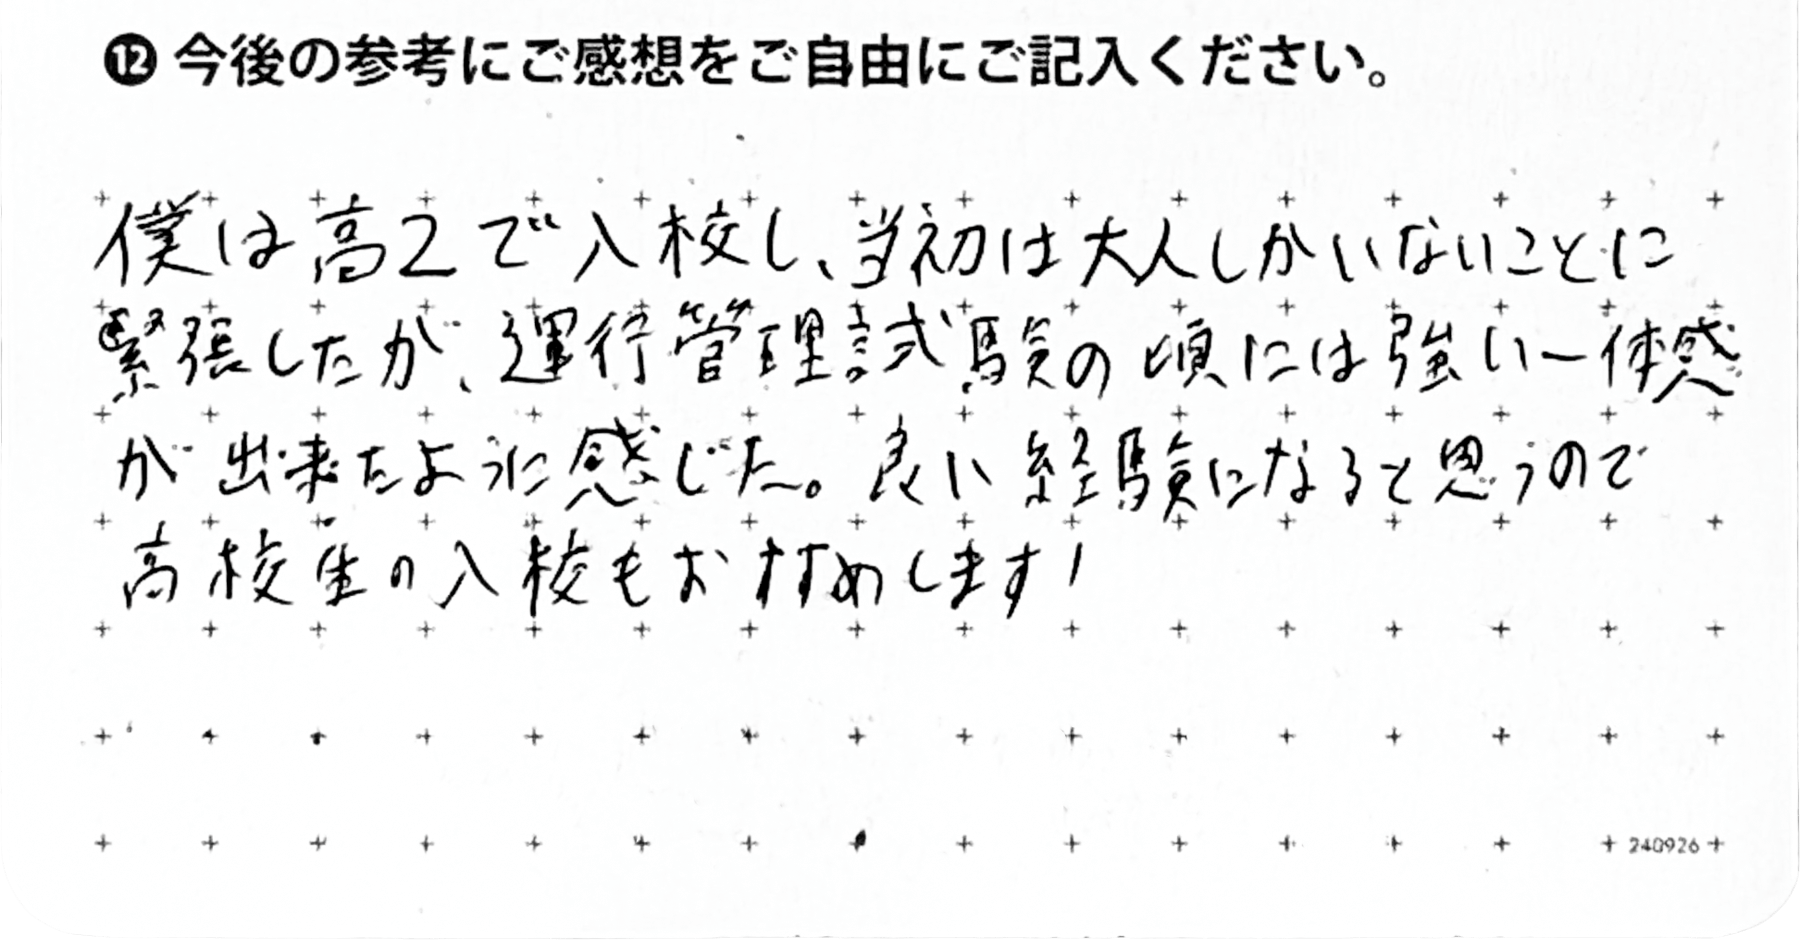 ⓬ 今後の参考にご感想をご自由にご記入ください。
僕は高2で入校し、当初は大人しかいないことに
緊張したが、運行管理試験の頃には強い一体感
が出来たように感じた。良い経験になると思うので
高校生の入校もおすすめします!
240926